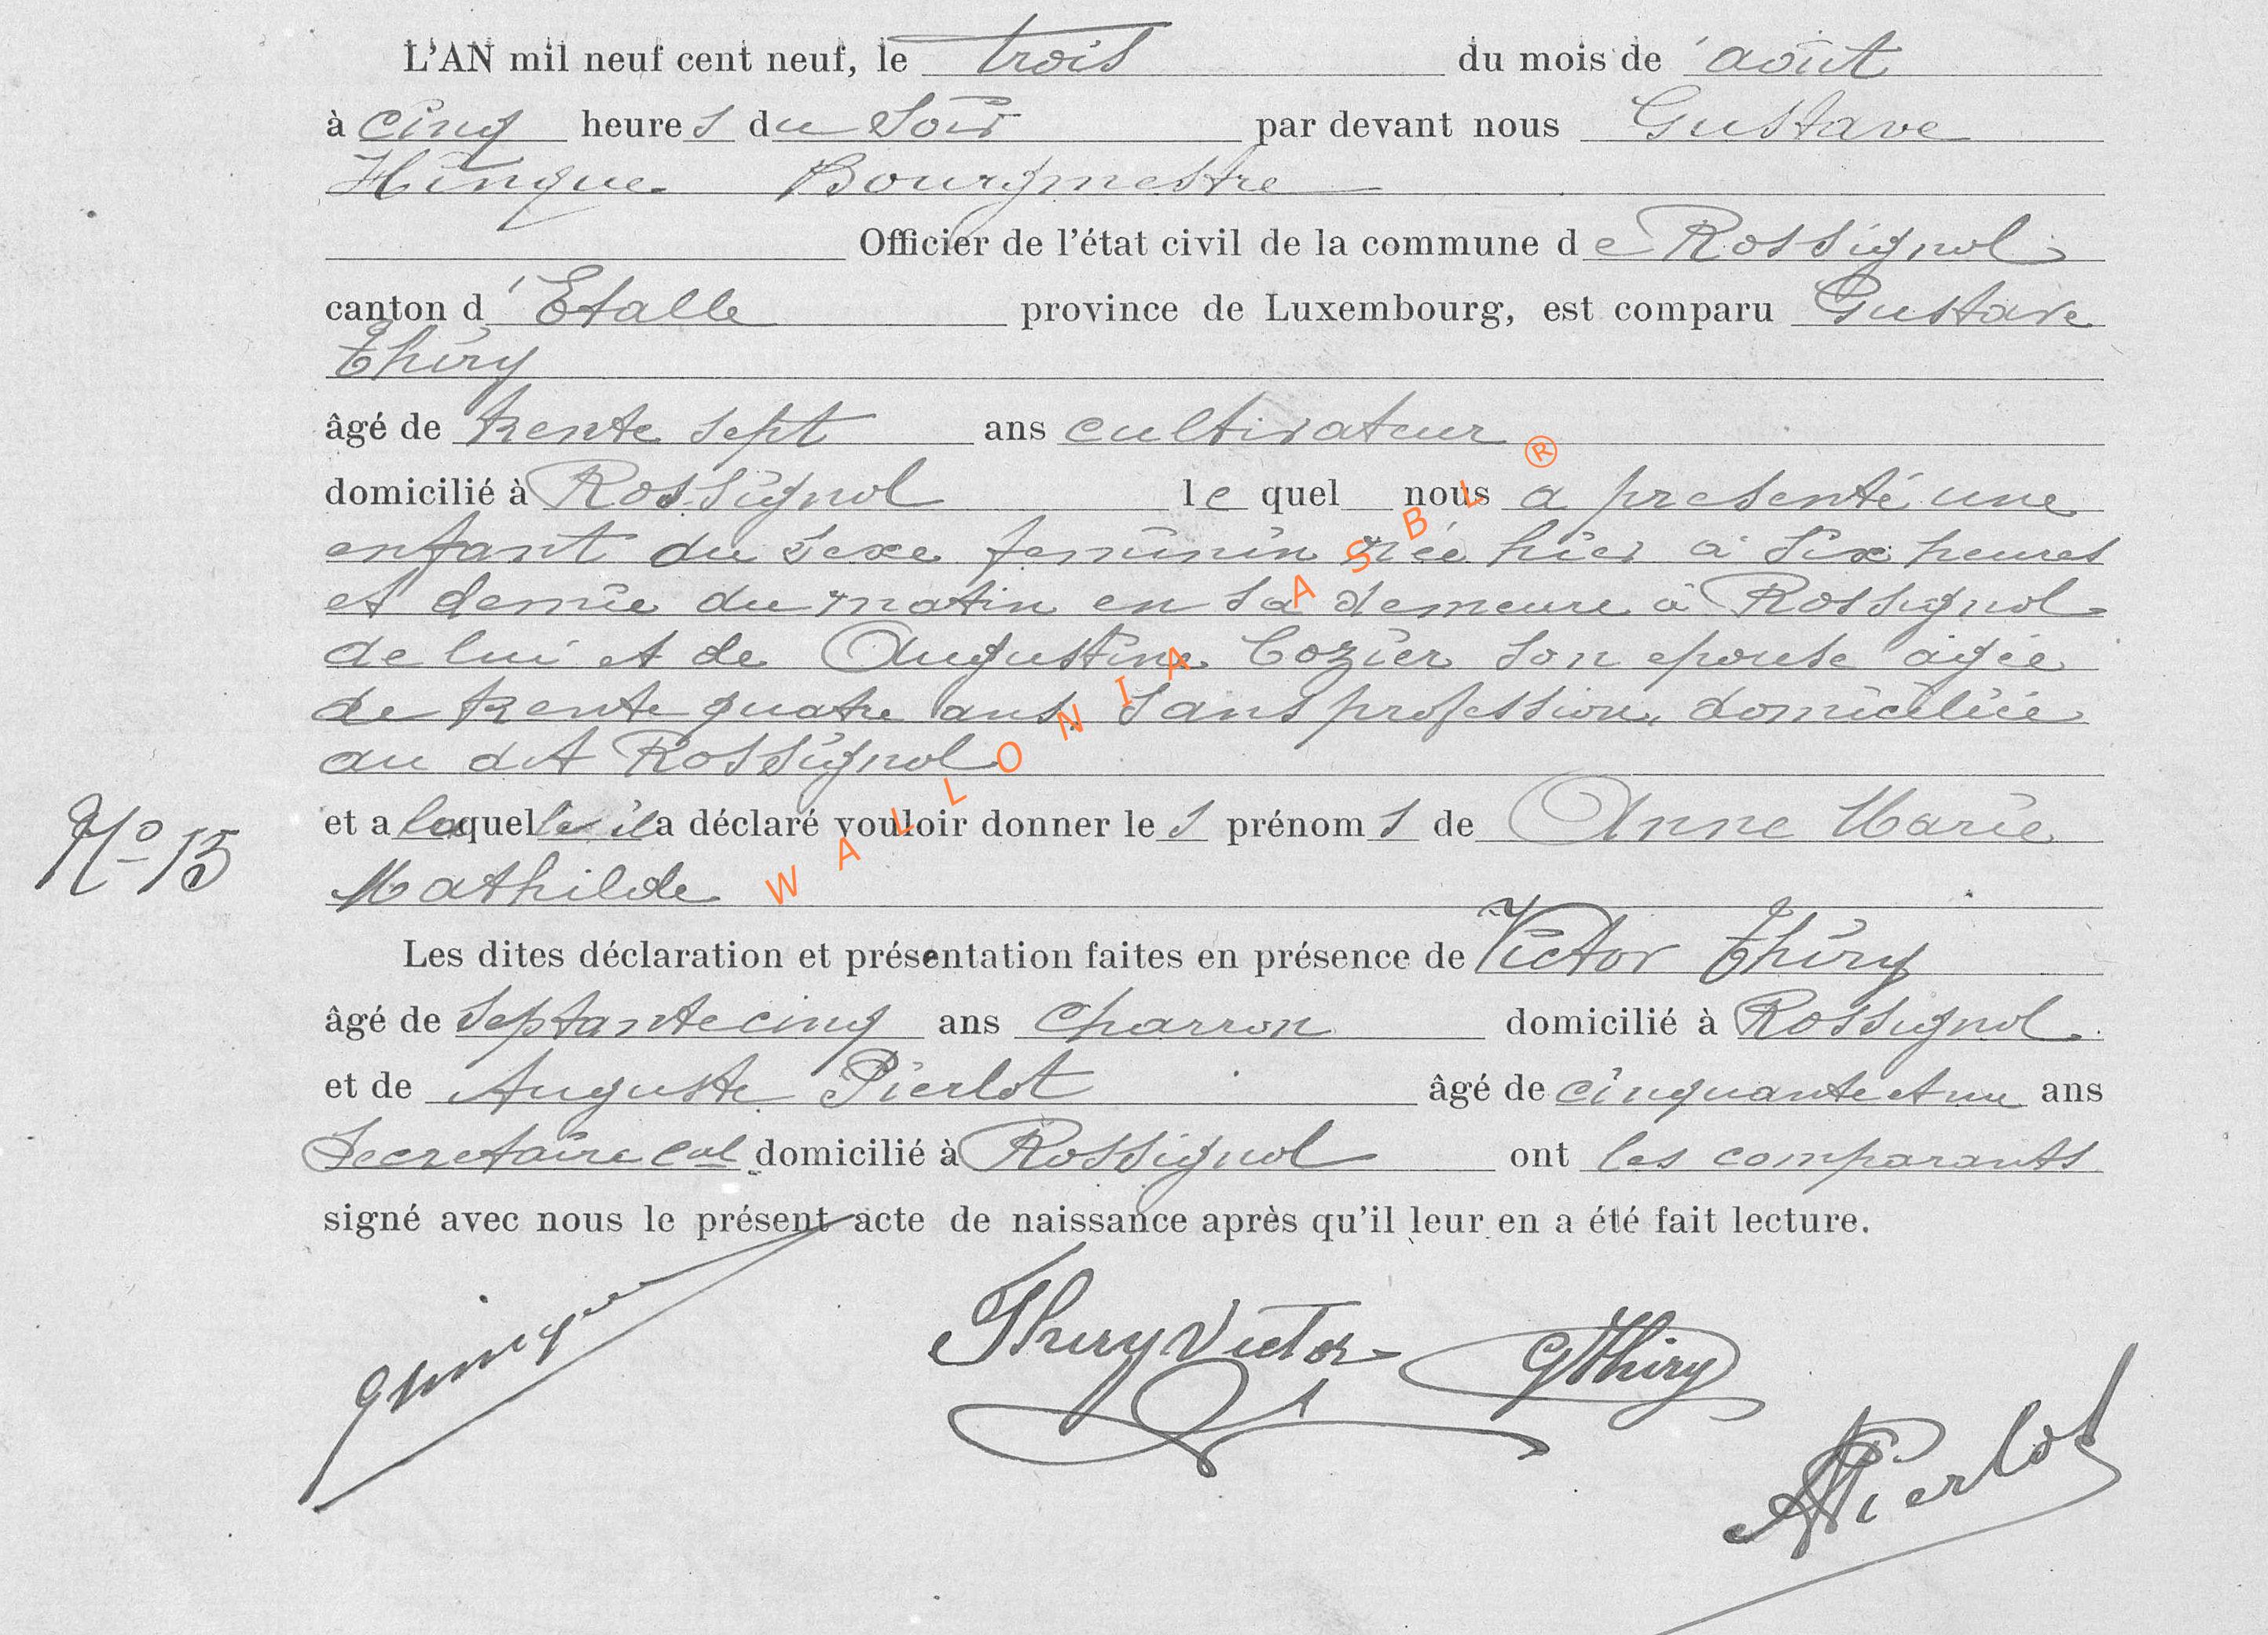 L'AN mil neuf cent neuf, le trois du mois de août
à cinq heures du Soir par devant nous Gustave
Hinque Bourgmestre
Officier de l'état civil de la commune de Rossignol
canton d'Etalle province de Luxembourg, est comparu Gustave
Thiry
âgé de trente sept ans cultivateur
domicilié à Rossignol le quel nous a presenté une
enfant du sexe feminin née hier à Six heures
et demie du matin en sa demeure à Rossignol
de lui et de Augustine Cozier son epouse agée
de trente quatre ans, Sans profession, domiciliée
au dit Rossignol
et a laquelle il a déclaré vouloir donner les prénoms de Anne Marie
Nº 15
Mathilde
Les dites déclaration et présentation faites en présence de Victor Thiry
âgé de Septante cinq ans charron domicilié à Rossignol
et de Auguste Pierlot âgé de cinquante et un ans
Secretaire cal domicilié à Rossignol ont les comparants
signé avec nous le présent acte de naissance après qu'il leur en a été fait lecture.
Thiry Victor GThiry
APierlot
WALLONIA ASBL ®